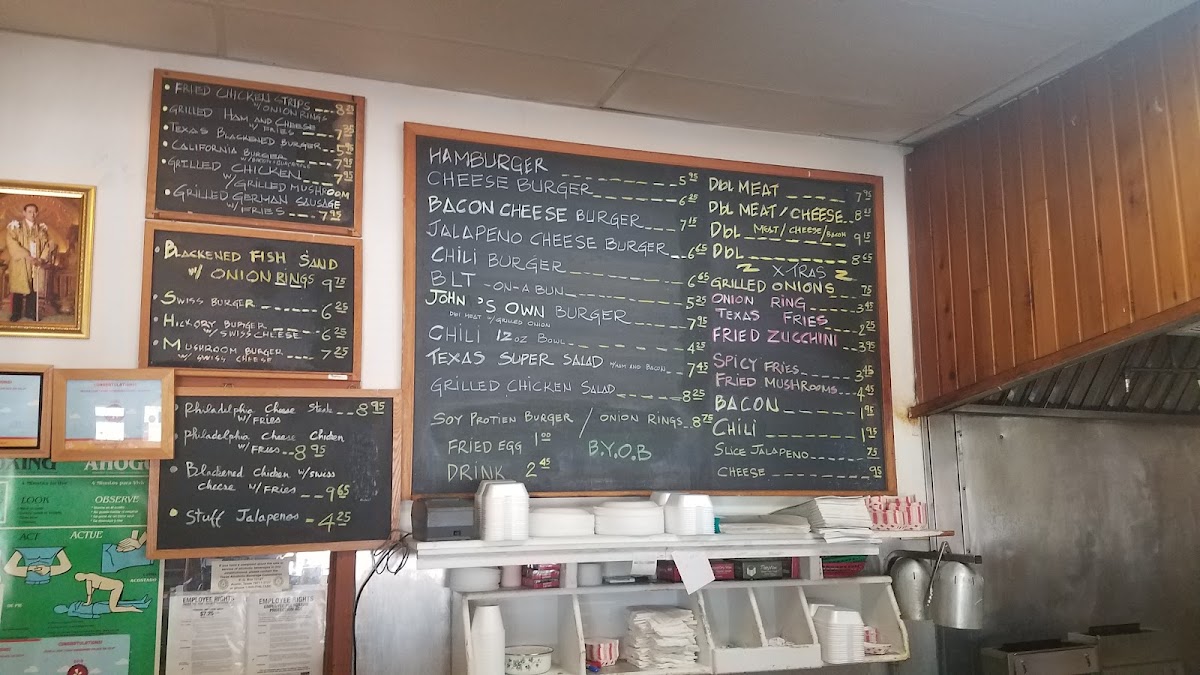 FRIED CHICKEN STRIPS
W/ONION RINGS --- 8.25
GRILLED HAM AND CHEESE
W/ FRIES ---- 7.25
TEXAS BLACKENED BURGER
CALIFORNIA BURGER ---- 7.95
GRILLED CHICKEN --- 7.95
W/GRILLED MUSHROOM
GRILLED GERMAN SAUSAGE
W/FRIES --- 7.95
BLACKENED FISH SAND
W/ ONION RINGS 9.75
SWISS BURGER ---- 6.25
HICKORY BURGER --- 6.25
W/ SWISS CHEESE
MUSHROOM BURGER ---- 7.25
W/ SWISS CHEESE
Philadelphia Cheese Steak -- 8.95
W/FRIES
Philadelphia Cheese Chicken
W/FRIES -- 8.95
Blackened Chicken W/swiss
cheese W/FRIES -- 9.65
Stuff Jalapenos - 4.25
HAMBURGER 5.95
CHEESE BURGER 6.25
BACON CHEESE BURGER 7.15
JALAPENO CHEESE BURGER 6.65
CHILI BURGER 6.65
BLT -ON-A BUN 5.25
JOHN'S OWN BURGER 7.95
DBL MEAT W/GRILLED ONION
CHILI 12oz BOWL 4.25
TEXAS SUPER SALAD W/HAM AND BACON 7.45
GRILLED CHICKEN SALAD 8.25
SOY PROTIEN BURGER / ONION RINGS 8.75
FRIED EGG 1.00
B.Y.O.B
DRINK 2.45
Dbl MEAT 7.95
Dbl MEAT/CHEESE
Dbl MEAT/CHEESE/BACON 9.15
Dbl 8.65
X-TRAS
GRILLED ONIONS .75
ONION RING 3.45
TEXAS FRIES 2.25
FRIED ZUCCHINI 3.95
SPICY FRIES 3.45
FRIED MUSHROOMS 4.45
BACON 1.95
CHILI 1.95
SLICE JALAPENO .75
CHEESE .95
LOOK
OBSERVE
ACT
ACTUE
EMPLOYEE RIGHTS
EMPLOYEE RIGHTS
$7.25